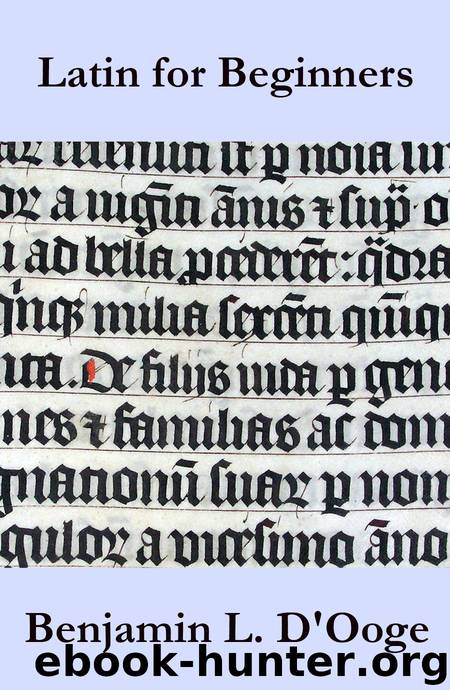 Latin for Beginners
st p noīa
oꝝ a uigīti ānis ⁊ sup̄ o
i ad bella ꝓcederēt: q̄dra
milia sexcēti quīqu
nta. De filijs iuda p gene
nes ⁊ familias ac dom
gnationū suaꝝ p nom
guloꝝ a uicesimo āno
Benjamin L. D'Ooge
ebook-hunter.org